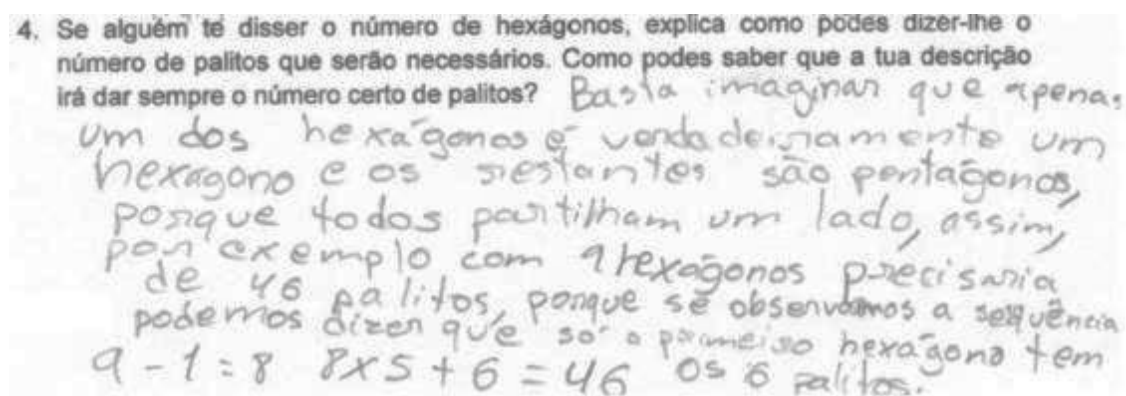 4. Se alguém te disser o número de hexágonos, explica como podes dizer-lhe o
número de palitos que serão necessários. Como podes saber que a tua descrição
irá dar sempre o número certo de palitos? Basta imaginar que apenas
um dos hexágonos é verdadeiramente um
hexagono e os restantes são pentágonos,
porque todos partilham um lado, assim,
por exemplo com 9 hexágonos precisaria
de 46 palitos, porque se observarmos a sequência
podemos dizer que só o primeiro hexágono tem
9 - 1 = 8 8 x 5 + 6 = 46 os 6 palitos.